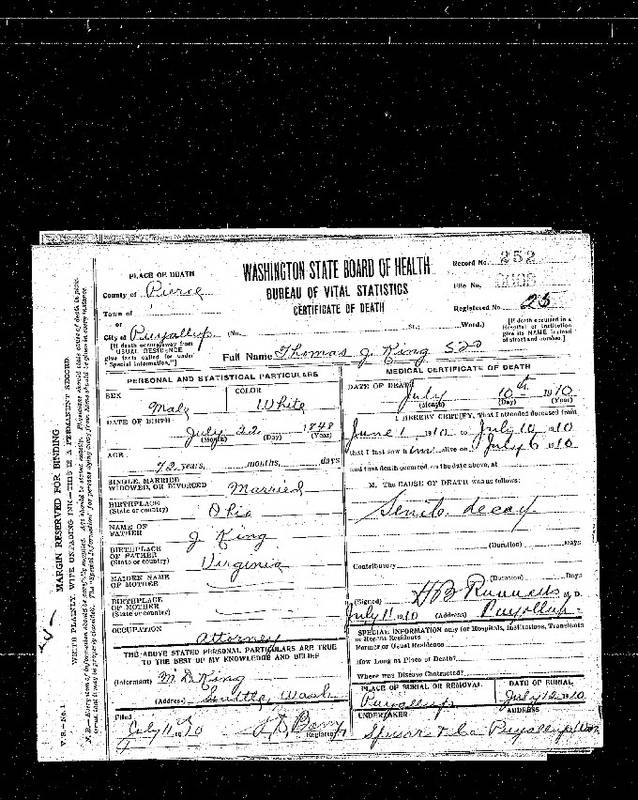 WASHINGTON STATE BOARD OF HEALTH
BUREAU OF VITAL STATISTICS
CERTIFICATE OF DEATH
Record No. 252
File No.
Registered No. 25
PLACE OF DEATH
County of Pierce
Town of
or
City of Puyallup (No. St.; Ward.)
[If death occurs away from
USUAL RESIDENCE
give facts called for under
"Special Information."]
[If death occurred in a
Hospital or Institution
give its NAME instead
of street and number.]
Full Name Thomas J. King
PERSONAL AND STATISTICAL PARTICULARS
SEX Male
COLOR White
DATE OF BIRTH July 22 1848
(Month) (Day) (Year)
AGE 72 years, months, days
SINGLE, MARRIED
WIDOWED, OR DIVORCED Married
BIRTHPLACE
(State or country) Ohio
NAME OF
FATHER J. King
BIRTHPLACE
OF FATHER
(State or country) Virginia
MAIDEN NAME
OF MOTHER
BIRTHPLACE
OF MOTHER
(State or country)
OCCUPATION Attorney
THE ABOVE STATED PERSONAL PARTICULARS ARE TRUE
TO THE BEST OF MY KNOWLEDGE AND BELIEF
(Informant) M. D. King
(Address) Seattle, Wash
Filed July 11 1910
Registrar
MEDICAL CERTIFICATE OF DEATH
DATE OF DEATH July 10th 1910
(Month) (Day) (Year)
I HEREBY CERTIFY, That I attended deceased from
June 1 1910 to July 10, 1910
that I last saw him alive on July 6 1910
and that death occurred, on the date above, at
M. The CAUSE OF DEATH was as follows:
Senile decay
(Duration) Days
Contributory
(Duration) Days
(Signed) M.D.
July 11 1910 (Address) Puyallup
SPECIAL INFORMATION only for Hospitals, Institutions, Transients
or Recent Residents
Former or Usual Residence
How Long at Place of Death?
Where was Disease Contracted?
PLACE OF BURIAL OR REMOVAL Puyallup
DATE OF BURIAL July 12 1910
UNDERTAKER
ADDRESS
& Co Puyallup Wn
MARGIN RESERVED FOR BINDING
WRITE PLAINLY, WITH UNFADING INK—THIS IS A PERMANENT RECORD
V. S.—No. 1